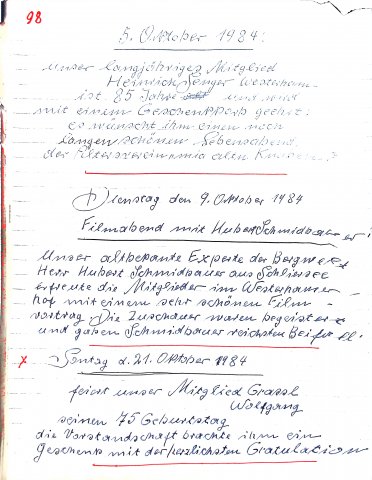 98
5. Oktober 1984:
unser langjähriges Mitglied
Heinrich Senger Westerham
ist 85 Jahre und wird
mit einem Geschenkkorb geehrt.
es wünscht ihm einen noch
langen schönen Lebensabend
der
Dienstag den 9. Oktober 1984
Filmabend mit Hubert Schmidbauer:
Unser altbekante Experte der Bergwelt
Herr Hubert Schmidbauer aus Schliersee
erfreute die Mitglieder im Westerhamer-
hof mit einem sehr schönen Film-
vortrag Die Zuschauer waren begeistert
und gaben Schmidbauer reichsten Beifall.
x Sontag d. 21. Oktober 1984
feiert unser Mitglied Grassl
Wolfgang
seinen 75 Geburtstag
die Vorstandschaft brachte ihm ein
Geschenk mit der herzlichsten Gratulation